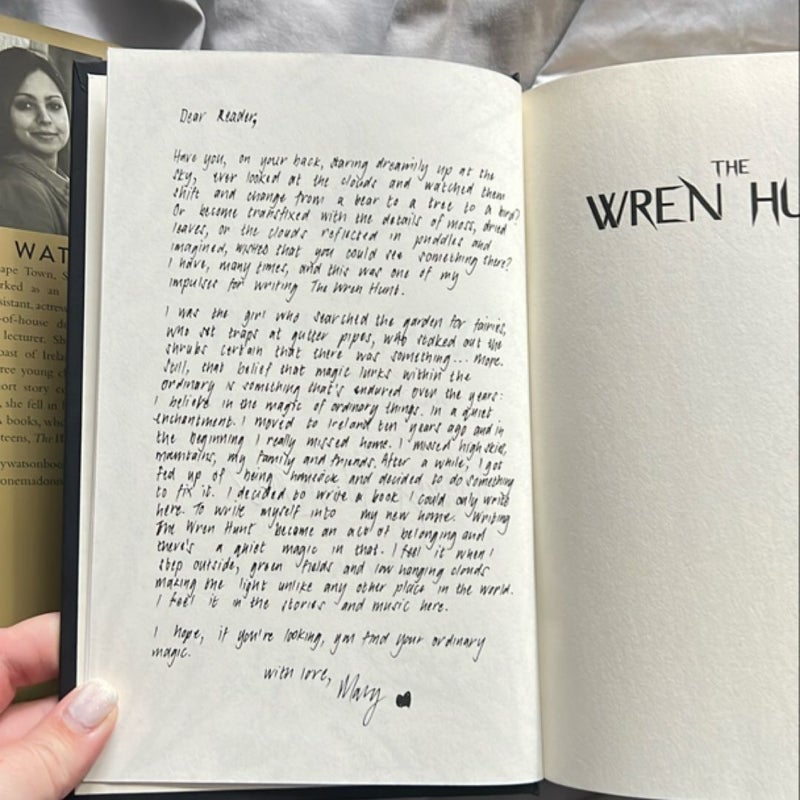 Dear Reader,
Have you, on your back, staring dreamily up at the
sky, ever looked at the clouds and watched them
shift and change from a bear to a tree to a bird?
Or become transfixed with the details of moss, dried
leaves, or the clouds reflected in puddles and
imagined, wished that you could see something there?
I have, many times, and this was one of my
impulses for writing The Wren Hunt.
I was the girl who searched the garden for fairies,
who set traps at gutter pipes, who staked out the
shrubs certain that there was something... more.
Still, that belief that magic lurks within the
ordinary is something that's endured over the years:
I believe in the magic of ordinary things. In a quiet
enchantment. I moved to Ireland ten years ago and in
the beginning I really missed home. I missed high skies,
mountains, my family and friends. After a while, I got
fed up of being homesick and decided to do something
to fix it. I decided to write a book I could only write
here. To write myself into my new home. Writing
The Wren Hunt became an act of belonging and
there's a quiet magic in that. I feel it when I
step outside, green fields and low hanging clouds
making the light unlike any other place in the world.
I feel it in the stories and music here.
I hope, if you're looking, you find your ordinary
magic.
with love,
Mary
THE
WREN HU
WAT
ape Town, S
rked as an
sistant, actress
-of-house
lecturer. Sh
oast of Irelan
ree young c
ort story co
, she fell in
books, who
teens, The W
ywatsonboo
onemadon